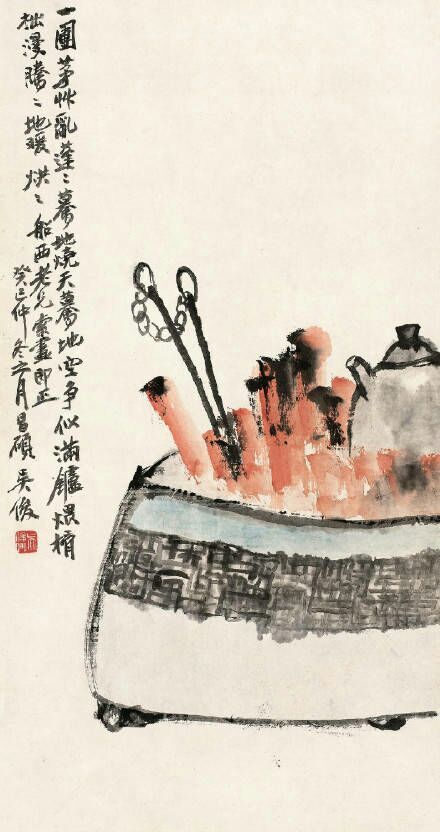 一團茅艸亂蓬〻驀地燒天驀地空爭似滿鑪煨榾
柮漫騰〻地暖烘〻船西老兄索畫即正
癸巳仲冬之月昌碩吳俊